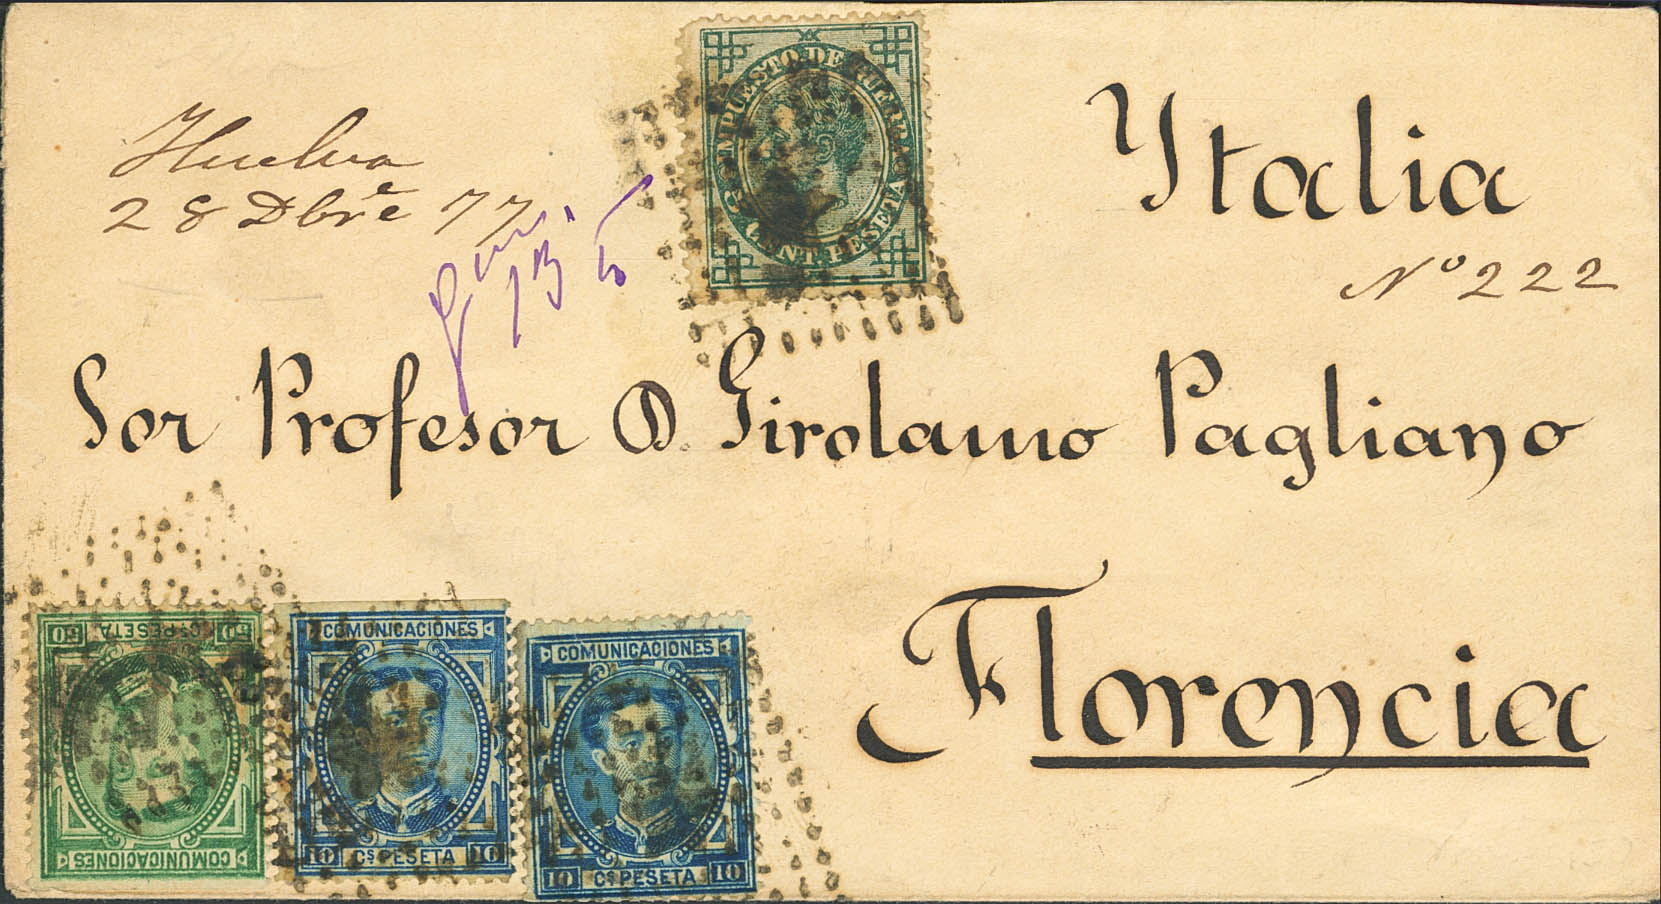 Huelva
28 Dbre 77
IMPUESTO DE GUERRA
5 CENT. PESETA
Ytalia
Nº 222
Sor Profesor D. Girolamo Pagliano
Florencia
50 Cs PESETA 50
COMUNICACIONES
COMUNICACIONES
10 Cs PESETA 10
COMUNICACIONES
10 Cs PESETA 10